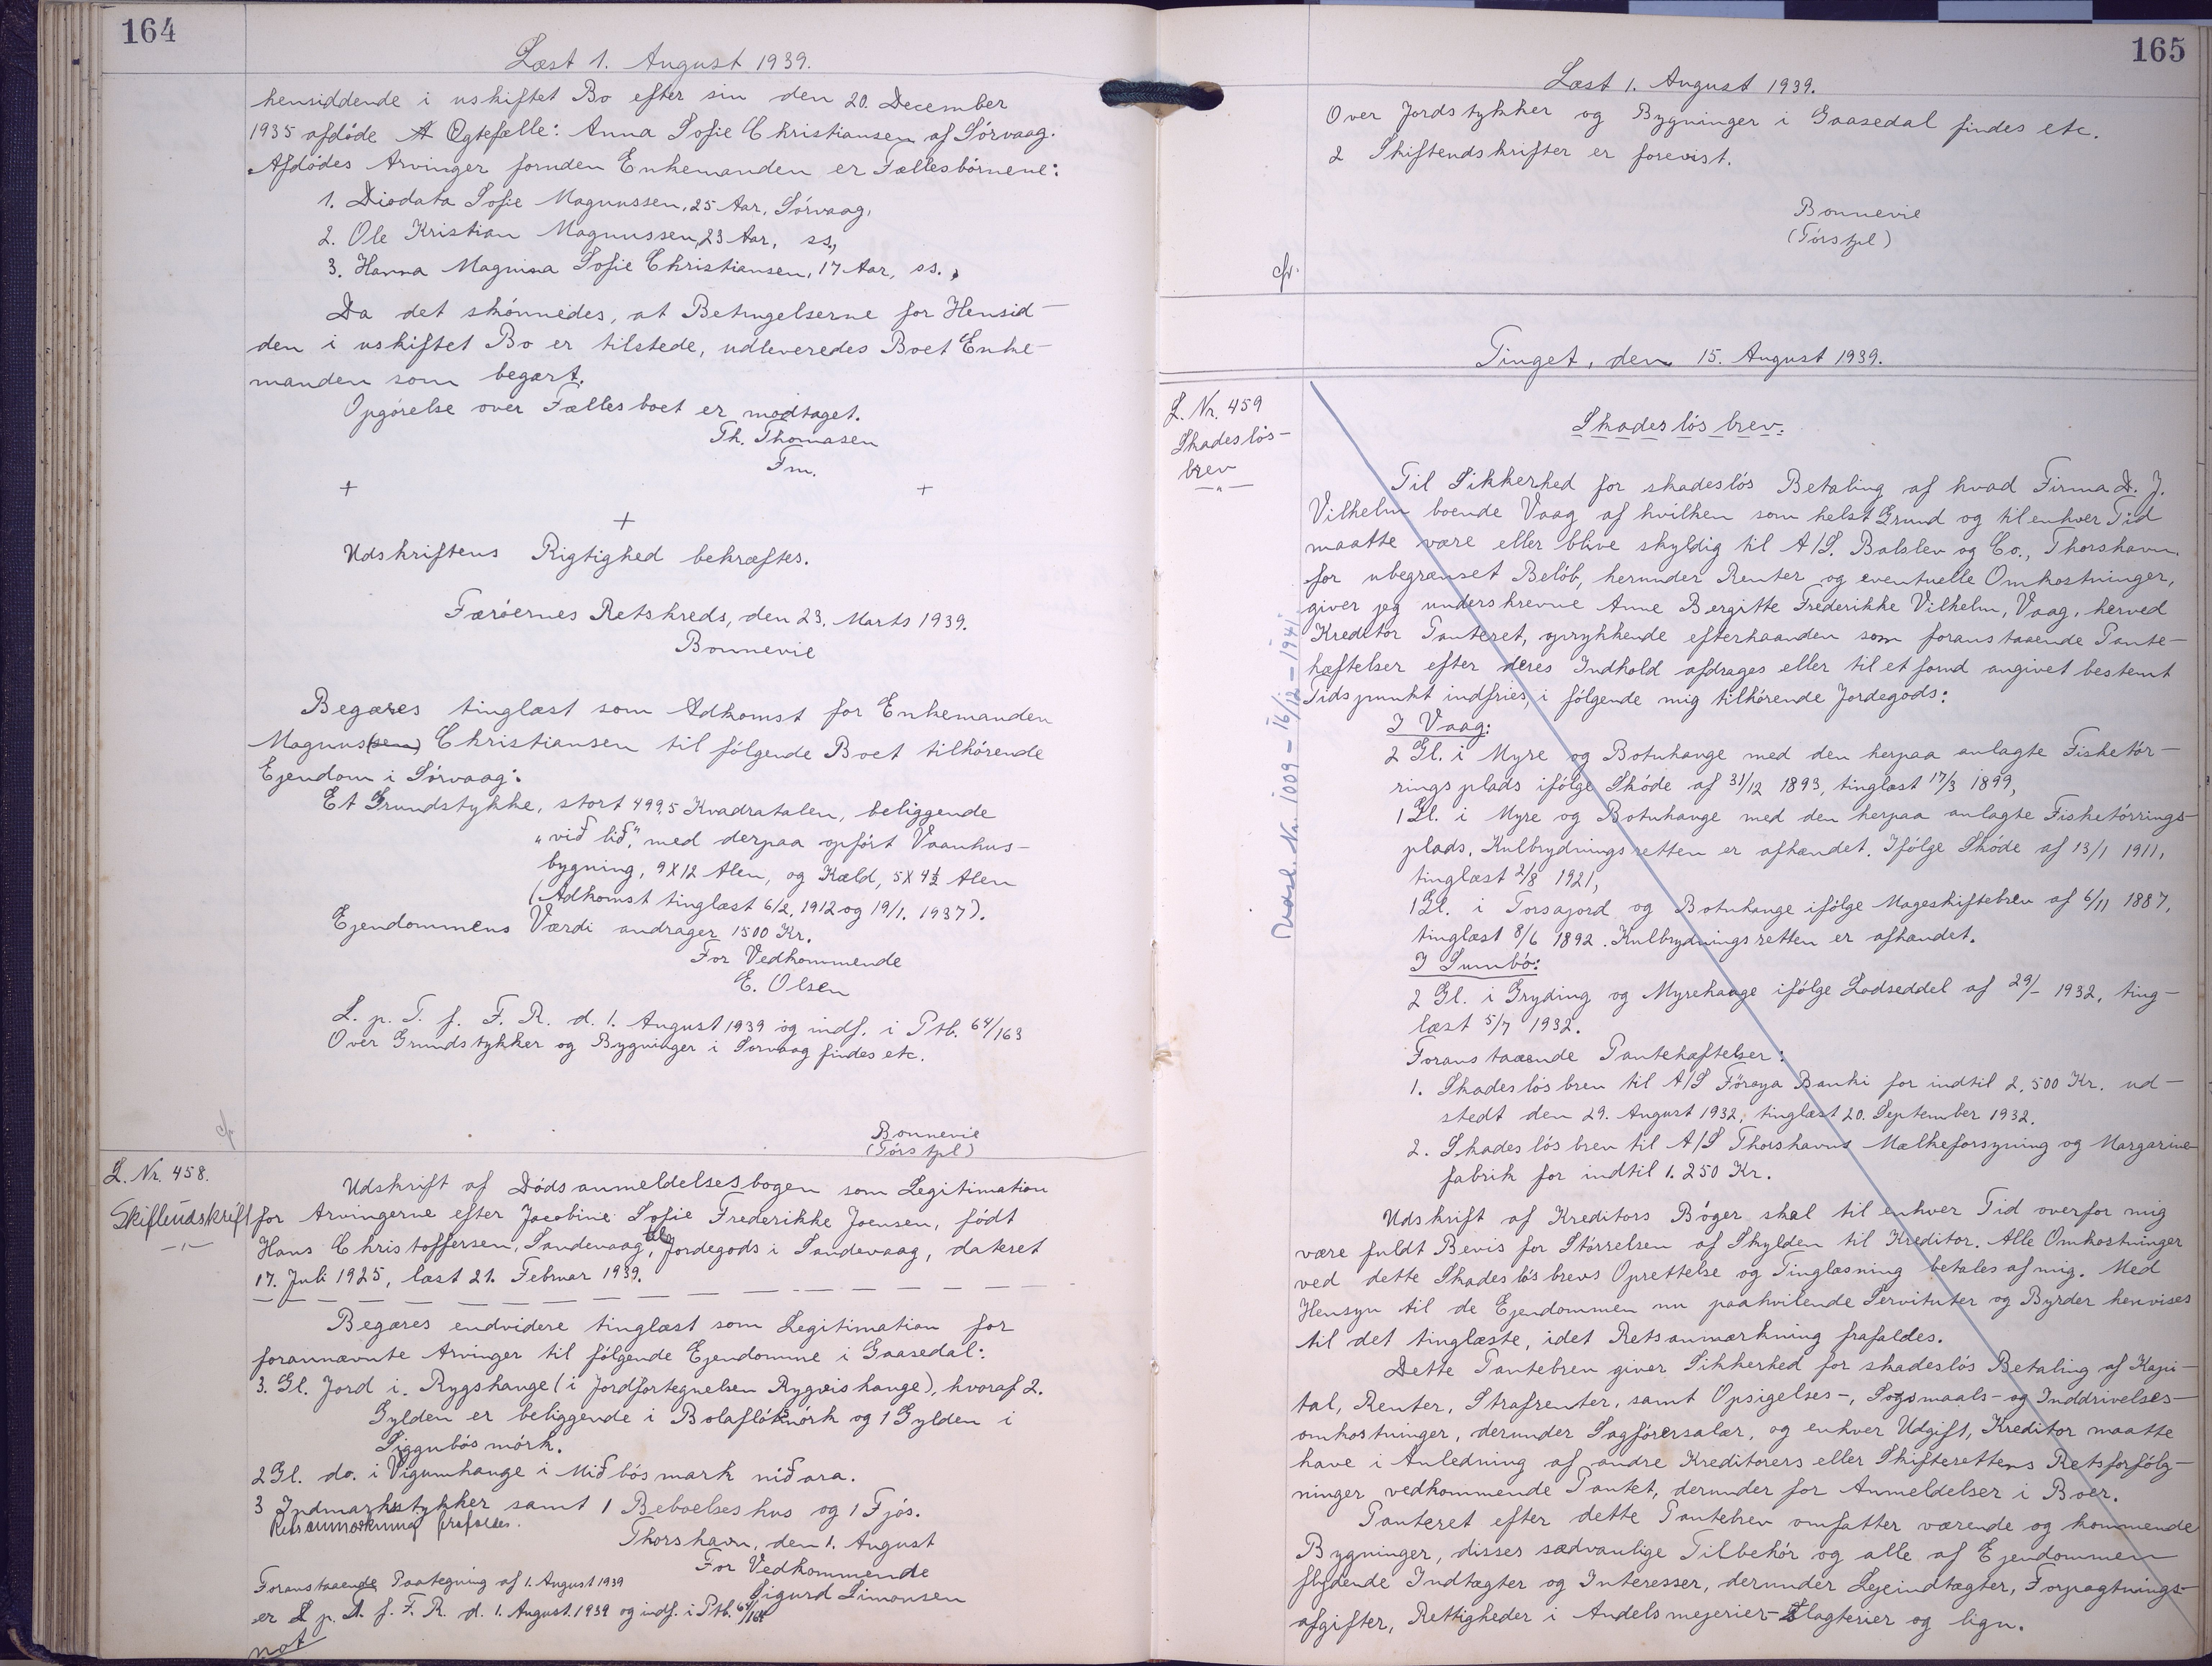 164
Læst 1. August 1939.
hensiddende i uskiftet Bo efter sin den 20. December
1935 afdöde Ægtefælle: Anna Sofie Christiansen af Sörvaag.
Afdödes Arvinger foruden Enkemanden er Fællesbörnene:
1. Diodata Sofie Magnussen, 25 Aar, Sörvaag,
2. Ole Kristian Magnussen, 23 Aar, ss.,
3. Hanna Magnina Sofie Christiansen, 17 Aar, ss.,
Da det skönnedes, at Betingelserne for Hensid-
den i uskiftet Bo er tilstede, udleveredes Boet Enke-
manden som begært.
Opgörelse over Fællesboet er modtaget.
Th. Thomasen
Fm.
+ +
+
Udskriftens Rigtighed bekræftes.
Færöernes Retskreds, den 23. Marts 1939.
Bonnevie
Begæres tinglæst som Adkomst for Enkemanden
Magnus(sen) Christiansen til fölgende Boet tilhörende
Ejendom i Sörvaag:
Et Grundstykke, stort 499,5 Kvadratalen, beliggende
"við lið", med derpaa opfört Vaanhus-
bygning, 9X12 Alen, og Kæld, 5X4½ Alen
(Adkomst tinglæst 6/2. 1912 og 19/1. 1937).
Ejendommens Værdi andrager 1500 Kr.
For Vedkommende
E. Olsen
L. p. T. f. F. R. d. 1. August 1939 og indf. i Ptb. 64/163
Over Grundstykker og Bygninger i Sorvaag findes etc.
cfr.
Bonnevie
(Törs fpl)
L. Nr. 458.
Skifteudskrift
Udskrift af Dödsanmeldelsesbogen som Legitimation
for Arvingerne efter Jacobine Sofie Frederikke Joensen, födt
Hans Christoffersen, Sandevaag, til Jordegods i Sandevaag, dateret
17. Juli 1925, læst 21. Februar 1939.
Begæres endvidere tinglæst som Legitimation for
forannævnte Arvinger til fölgende Ejendomme i Gaasedal:
3. Gl. Jord i. Rygshange (i Jordfortegnelsen Rygvishange), hvoraf 2.
Gylden er beliggende i Bolaflötsmörk og 1 Gylden i
Siggubós mörk.
2 Gl. do. i Vigumhange i Miðbós mark niðara.
3 Indmarksstykker samt 1 Beboelseshus og 1 Fjós.
Retsanmærkning frafaldes.
Thorshavn, den 1. August
For Vedkommende
Sigurd Simonsen
Foranstaaende Paategning af 1. August 1939
er L p. T. f. F. R. d. 1. August. 1939 og indf. i Ptb. 64/164
not
165
Læst 1. August 1939.
Over Jordstykker og Bygninger i Gaasedal findes etc.
2 Skifteudskrifter er forevist.
Bonnevie
(Törs fpl)
cfr.
Tinget, den 15. August 1939.
L. Nr. 459
Skadeslös-
brev
Skadeslös brev.
Til Sikkerhed for skadeslös Betaling af hvad Firma D. J.
Vilhelm boende Vaag af hvilken som helst Grund og til enhver Tid
maatte være eller blive skyldig til A/S. Balslev og Co., Thorshavn.
for ubegrænset Belöb, herunder Renter og eventuelle Omkostninger,
giver jeg underskrevne Anne Bergitte Frederikke Vilhelm, Vaag, herved
Kreditor Panteret, oprykkende efterhaanden som foranstaaende Pante-
hæftelser efter deres Indhold afdrages eller til et forud angivet bestemt
Tidspunkt indfries, i fölgende mig tilhörende Jordegods:
I Vaag:
2 Gl. i Myre og Botnhange med den herpaa anlagte Fisketör-
rings plads ifölge Sköde af 31/12 1893, tinglæst 17/3 1899,
1 Gl. i Myre og Botnhange med den herpaa anlagte Fisketörrings-
plads, Kulbrydningsretten er afhændet. Ifölge Sköde af 13/1 1911,
tinglæst 2/8 1921,
1 Gl. i Torsajord og Botnhange ifölge Mageskiftebrev af 6/11 1887,
tinglæst 8/6 1892. Kulbrydningsretten er afhændet.
I Sumbö:
2 Gl. i Gryding og Myrehauge ifölge Lodseddel af 29/- 1932, ting-
læst 5/7 1932.
Foranstaaende Pantehæftelser:
1. Skadeslösbrev til A/S Föroya Banki for indtil 2.500 Kr. ud-
stedt den 29. August 1932, tinglæst 20. September 1932.
2. Skadeslösbrev til A/S Thorshavns Mælkeforsyning og Margarine-
fabrik for indtil 1.250 Kr.
Udskrift af Kreditors Böger skal til enhver Tid overfor mig
være fuldt Bevis for Störrelsen af Skylden til Kreditor. Alle Omkostninger
ved dette Skadeslösbrevs Oprettelse og Tinglæsning betales af mig. Med
Hensyn til de Ejendommen nu paahvilende Servituter og Byrder henvises
til det tinglæste, idet Retsanmærkning frafaldes.
Dette Pantebrev giver Sikkerhed for skadeslös Betaling af Kapi-
tal, Renter, Strafrenter, samt Opsigelses-, Sogsmaals- og Inddrivelses-
omkostninger, derunder Sagförersalær, og enhver Udgift, Kreditor maatte
have i Anledning af andre Kreditorers eller Skifterettens Retsforfölg-
ninger vedkommende Pantet, derunder for Anmeldelser i Boer.
Panteret efter dette Pantebrev omfatter værende og kommende
Bygninger, disses sædvanlige Tilbehör og alle af Ejendommen
flydende Indtægter og Interesser, derunder Lejeindtægter, Forpagtnings-
afgifter, Rettigheder i Andelsmejerier- Slagterier og lign.
Nr. 1009 - 16/12 - 1941